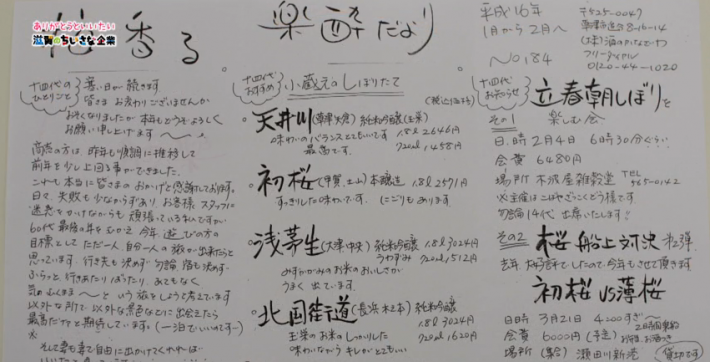 ありがとうといいたい
滋賀のちいさな企業
香る
楽酔だより
平成16年
1月から2月へ
No184
〒525-0047
0120-44-1020
十四代の
ひとりごと
暑い日が続きます
皆さまお変わりございませんか
おそくなりましたが本年もどうぞよろしく
お願い申し上げます
商売の方は昨年も順調に推移して
前年を少し上回る事ができました。
これも本当に皆さまのおかげと感謝しております。
日々失敗も少なからずあり お客様 スタッフに
迷惑をかけながらも頑張っているわけですが
60代最後の年をむかえ 今年 遊びの方の
目標としてただ一人、自分一人の旅が出来たらと
思っています。行き先も決めず 勿論 宿も決めず
ふらっと、行きあたりばったり、あてもなく
気のむくまま〜という旅をしようと考えています
最高だナァと期待しています。(一泊でいいのです〜)
そして妻も妻で自由に出かけてくれれば
十四代
おすすめ
小蔵元のしぼりたて
天井川(草津 矢倉)純米吟醸(玉栄)
味わいのバランスとてもいいです
最高です。
1.8l 2646円
720ml 1458円
初桜(甲賀、土山)本醸造 1.8l 2571円
すっきりした味わいです。にごりもあります。
浅茅生(大津・中央)純米吟醸 1.8l 3024円
うわずみ 720ml 1512円
みずかがみのお米のおいしさが
うまく出ています
北国街道(長浜 木之本)純米吟醸
玉栄のお米のしっかりした 1.8l 3024円
味わいながらキレがとてもいい 720ml 1620円
十四代
お知らせ
立春朝しぼりを
その1 楽しむ会
日時 2月4日 6時30分ぐらい
会費 6480円
場所 木波屋雑穀堂 TEL
565-0142
※主催はこはぜごこどう様です
勿論14代 出席いたします!
その2 桜 船上対決 第2弾
去年 大好評でしたので今年もさせて頂きます
初桜 VS 薄桜
日時 3月21日 4:00すぎ〜
会費 6000円(予定)
場所(集合)瀬田川新港
貸切です